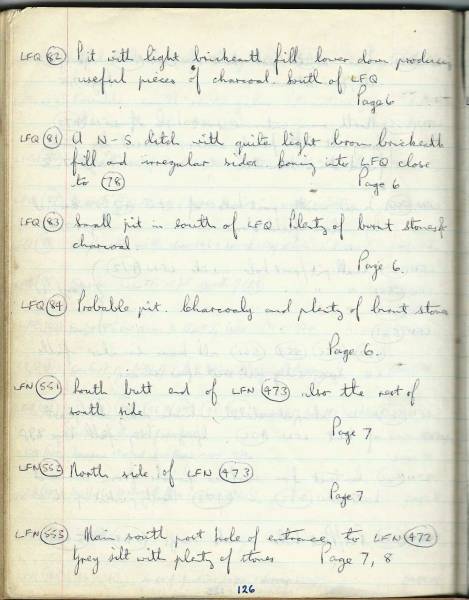 LFQ (82) Pit with light brickearth fill lower down producing
useful pieces of charcoal. South of LFQ
Page 6
LFQ (81) A N-S ditch with quite light brown brickearth
fill and irregular sides. Coming into LFQ close
to (78) Page 6
LFQ (83) Small pit in south of LFQ. Plenty of burnt stones &
charcoal
Page 6.
LFQ (84) Probable pit. Charcoaly and plenty of burnt stones
Page 6.
LFN (551) South butt end of LFN (473) also the rest of
south side
Page 7
LFN (552) North side of LFN (473)
Page 7
LFN (553) Main south post hole of entrance to LFN (472)
Grey silt with plenty of stones Page 7, 8
126